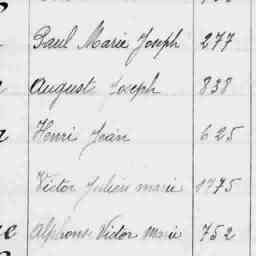 Paul Marie Joseph 277
August Joseph 838
Henri Jean 625
Victor Julien marie 1775
Alphons Victor Marie 752